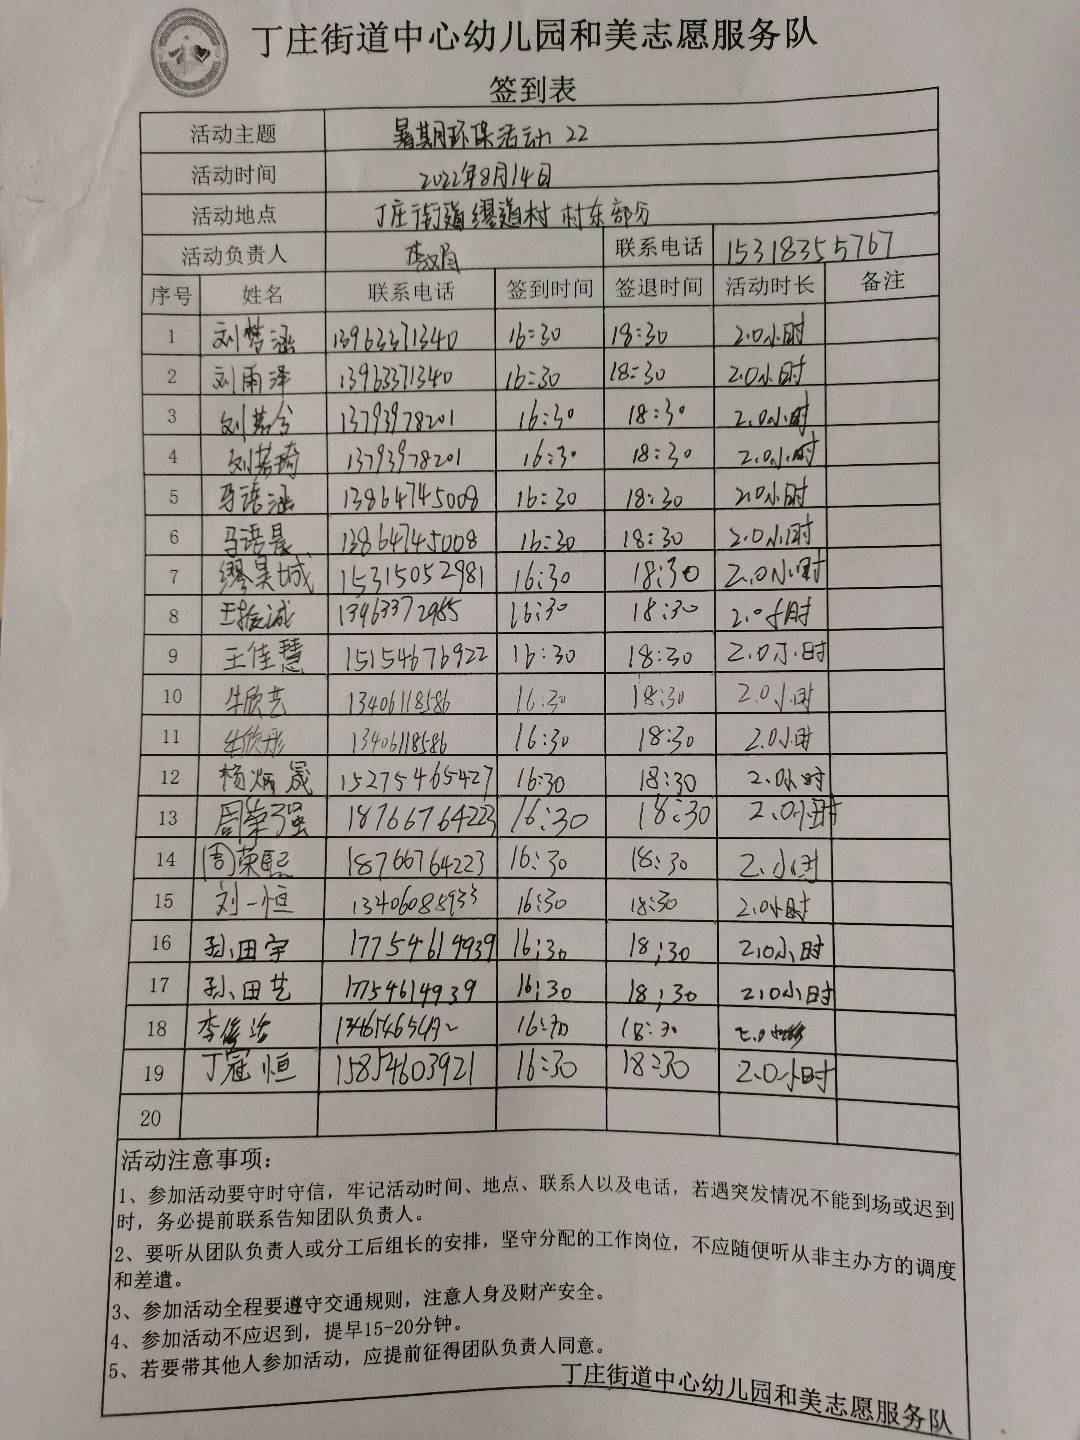 丁庄街道中心幼儿园和美志愿服务队
签到表
活动主题 暑期环保活动 22
活动时间 2022年8月14日
活动地点 丁庄街道缪道村 村东部分
活动负责人 联系电话 15318355767
序号 姓名 联系电话 签到时间 签退时间 活动时长 备注
1 刘梦涵 13963371340 16:30 18:30 2.0小时
2 刘雨泽 13963371340 16:30 18:30 2.0小时
3 刘若兮 13793978201 16:30 18:30 2.0小时
4 刘若琦 13793978201 16:30 18:30 2.0小时
5 马语涵 13864745008 16:30 18:30 2.0小时
6 马语晨 13864745008 16:30 18:30 2.0小时
7 缪昊城 15315052981 16:30 18:30 2.0小时
8 王振诚 13963372985 16:30 18:30 2.0小时
9 王佳慧 15154676922 16:30 18:30 2.0小时
10 牛欣艺 13406118586 16:30 18:30 2.0小时
11 牛欣彤 13406118586 16:30 18:30 2.0小时
12 杨炳晟 15275465427 16:30 18:30 2.0小时
13 周荣强 18766764223 16:30 18:30 2.0小时
14 周荣熙 18766764223 16:30 18:30 2.小时
15 刘一恒 13406088933 16:30 18:30 2.0小时
16 孙田宇 17754614939 16:30 18:30 2.0小时
17 孙田艺 17754614939 16:30 18:30 2.0小时
18 16:30 18:30
19 丁冠恒 15854603921 16:30 18:30 2.0小时
20
活动注意事项：
1、参加活动要守时守信，牢记活动时间、地点、联系人以及电话，若遇突发情况不能到场或迟到
时，务必提前联系告知团队负责人。
2、要听从团队负责人或分工后组长的安排，坚守分配的工作岗位，不应随便听从非主办方的调度
和差遣。
3、参加活动全程要遵守交通规则，注意人身及财产安全。
4、参加活动不应迟到，提早15-20分钟。
5、若要带其他人参加活动，应提前征得团队负责人同意。
丁庄街道中心幼儿园和美志愿服务队